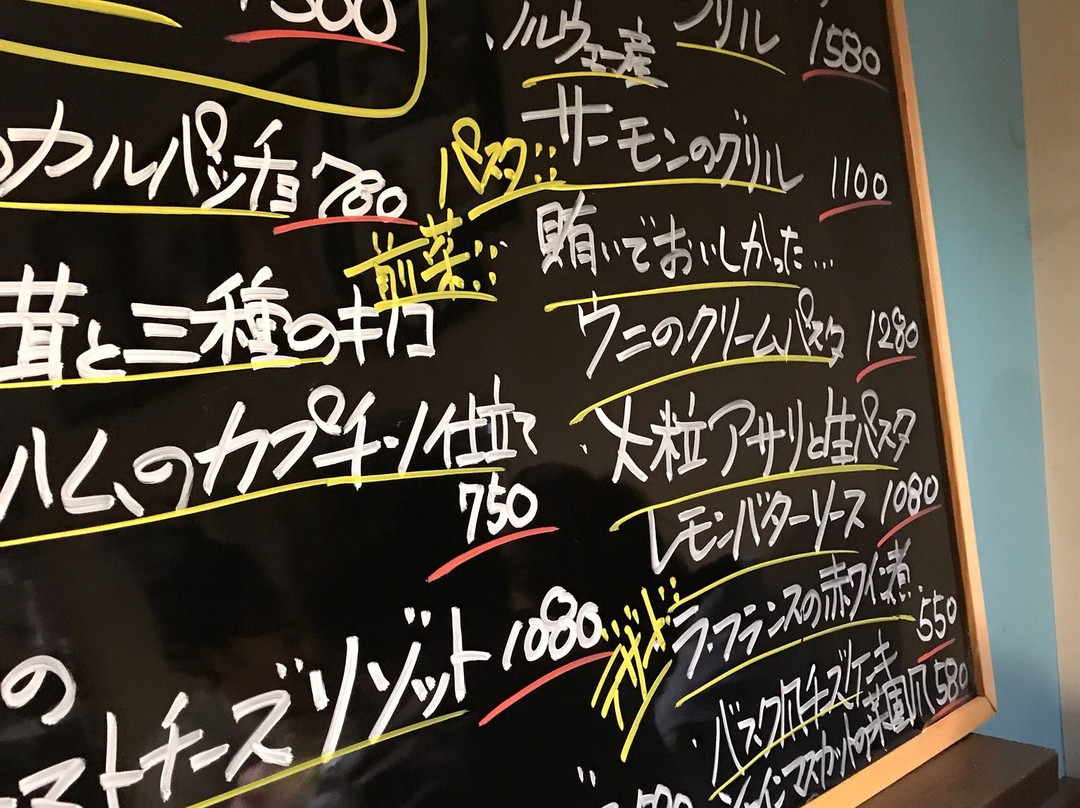 カルパッチョ 780
茸と三種のキノコ
ハムのカプチーノ仕立て
750
の
ストチーズリゾット 1080
ノルウェー産 グリル 1580
パスタ::
サーモンのグリル 1100
前菜::
賄いでおいしかった...
ウニのクリームパスタ 1280
・大粒アサリと生パスタ
レモンバターソース 1080
デザート::
ラ・フランスの赤ワイン煮 550
・バスク風チーズケーキ
シャインマスカットの菓園風 580